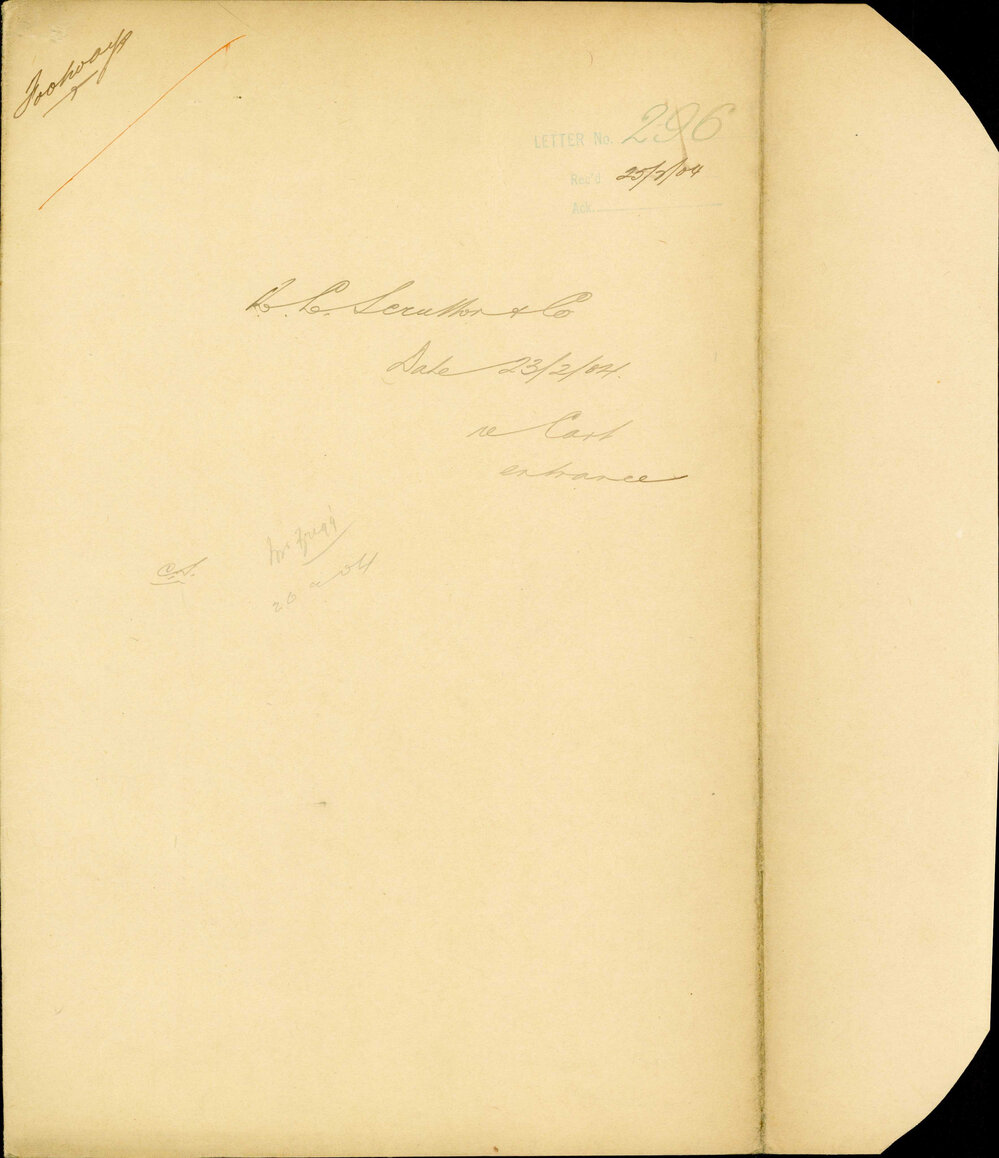 Footways
LETTER No. 296
Rec'd 25/2/04
Ack.
& Co
Date 23/2/04.
re Cart
entrance
C.S.
Mr
26 2 04